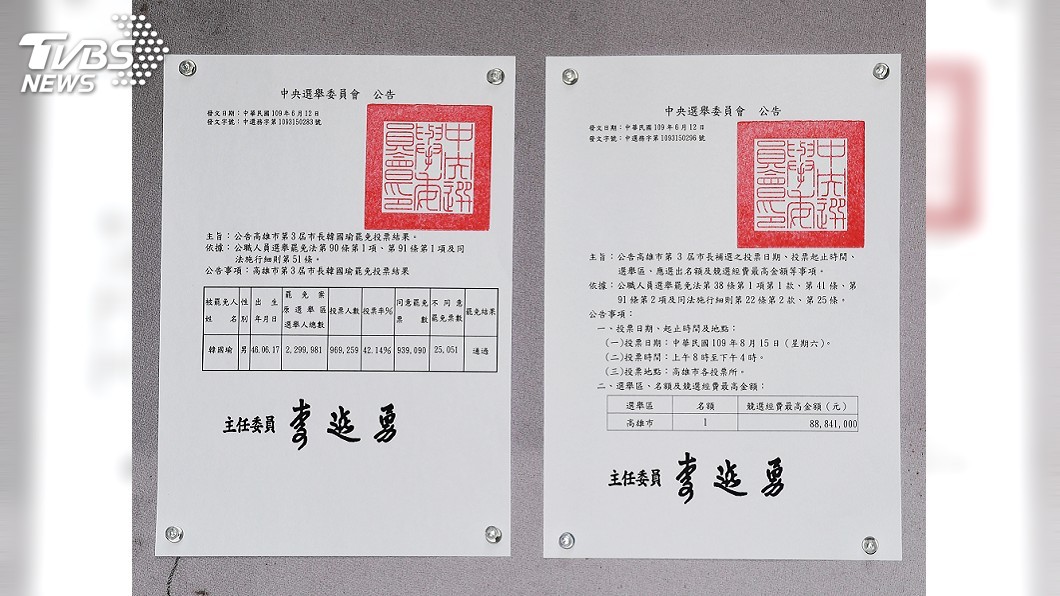 TVBS
NEWS
中央選舉委員會 公告
發文日期：中華民國109年6月12日
發文字號：中選務字第1093150283號
中央選
舉委
員會印
主旨：公告高雄市第3屆市長韓國瑜罷免投票結果。
依據：公職人員選舉罷免法第90條第1項、第91條第1項及同
法施行細則第51條。
公告事項：高雄市第3屆市長韓國瑜罷免投票結果
被罷免人姓名 性別 出生年月日 罷免案原選舉區選舉人總數 投票人數 投票率% 同意罷免票數 不同意罷免票數 罷免結果
韓國瑜 男 46.06.17 2,299,981 969,259 42.14% 939,090 25,051 通過
主任委員 李進勇
中央選舉委員會 公告
發文日期：中華民國109年6月12日
發文字號：中選務字第1093150296號
中央選
舉委
員會印
主旨：公告高雄市第3屆市長補選之投票日期、投票起止時間、
選舉區、應選出名額及競選經費最高金額等事項。
依據：公職人員選舉罷免法第38條第1項第1款、第41條、第
91條第2項及同法施行細則第22條第2款、第25條。
公告事項：
一、投票日期、起止時間及地點：
(一)投票日期：中華民國109年8月15日(星期六)。
(二)投票時間：上午8時至下午4時。
(三)投票地點：高雄市各投票所。
二、選舉區、名額及競選經費最高金額：
選舉區 名額 競選經費最高金額(元)
高雄市 1 88,841,000
主任委員 李進勇